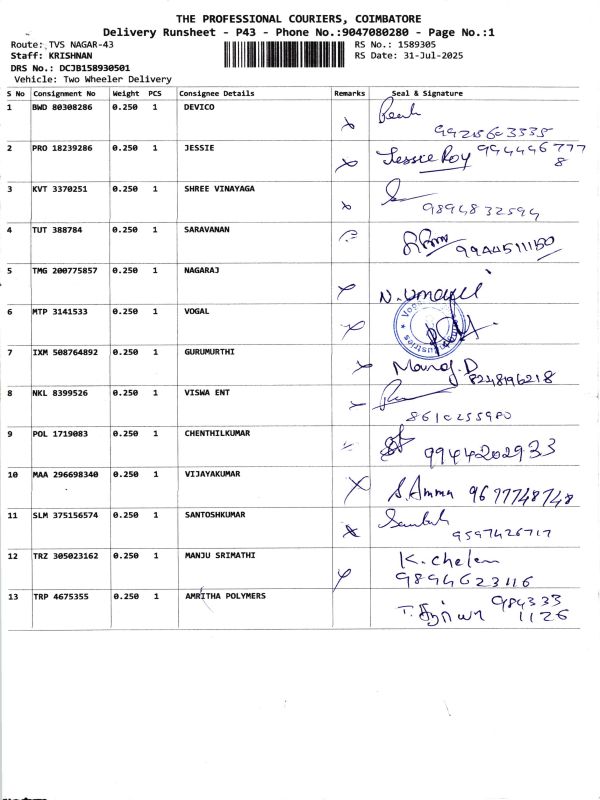 THE PROFESSIONAL COURIERS, COIMBATORE
Delivery Runsheet - P43 - Phone No.:9047080280 - Page No.:1
Route: TVS NAGAR-43
RS No.: 1589305
Staff: KRISHNAN
RS Date: 31-Jul-2025
DRS No.: DCJB158930501
Vehicle: Two Wheeler Delivery
S No Consignment No Weight PCS Consignee Details Remarks Seal & Signature
1 BWD 80308286 0.250 1 DEVICO
2 PRO 18239286 0.250 1 JESSIE Jessie Roy 994446777
8
3 KVT 3370251 0.250 1 SHREE VINAYAGA
9894832594
4 TUT 388784 0.250 1 SARAVANAN
9944511150
5 TMG 200775857 0.250 1 NAGARAJ
6 MTP 3141533 0.250 1 VOGAL
7 IXM 508764892 0.250 1 GURUMURTHI Manoj.D
8248196218
8 NKL 8399526 0.250 1 VISWA ENT
8610255980
9 POL 1719083 0.250 1 CHENTHILKUMAR
9944202933
10 MAA 296698340 0.250 1 VIJAYAKUMAR
S.Amma 9677748748
11 SLM 375156574 0.250 1 SANTOSHKUMAR
9597426717
12 TRZ 305023162 0.250 1 MANJU SRIMATHI K. Chelan
9894623116
13 TRP 4675355 0.250 1 AMRITHA POLYMERS 984333
1126